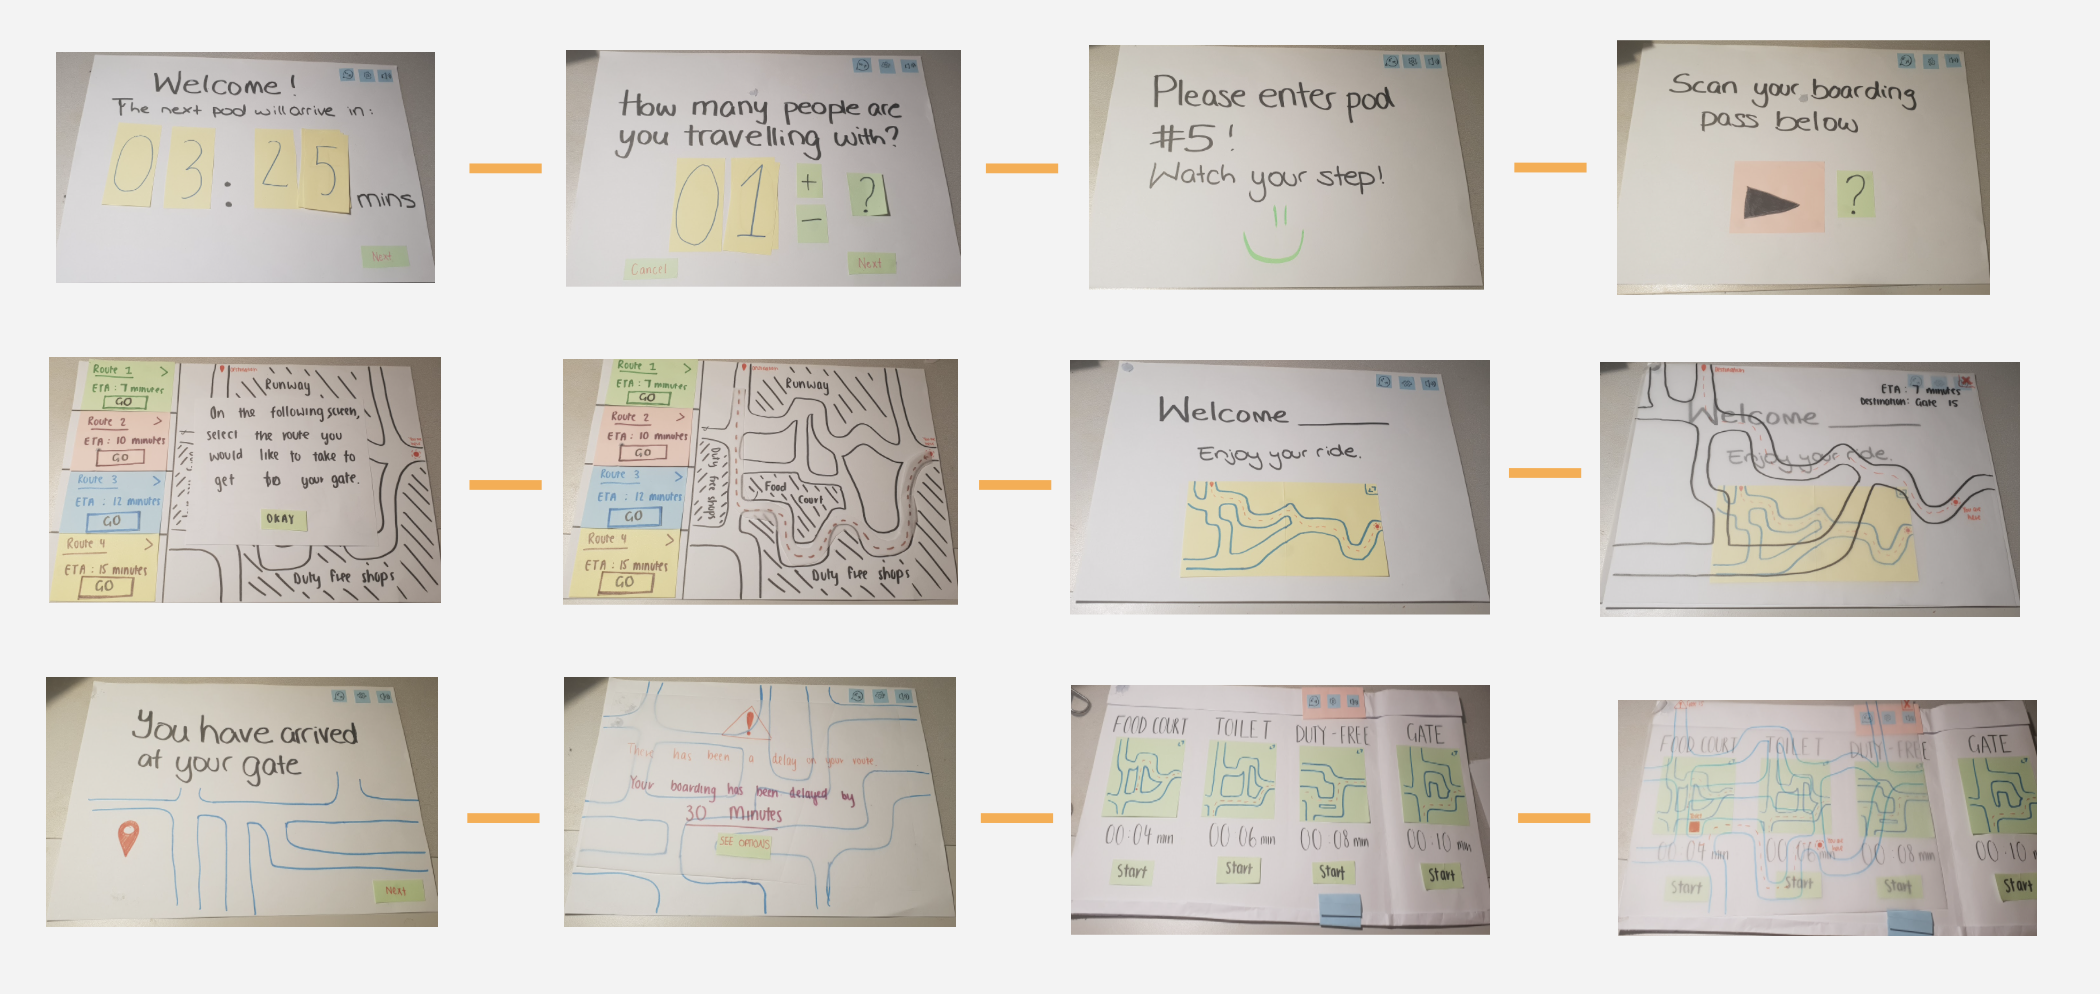 Welcome!
The next pod will arrive in:
03:25 mins
Next
How many people are
you travelling with?
01 + - ?
Cancel
Next
Please enter pod
#5!
Watch your step!
Scan your boarding
pass below
?
Route 1 >
ETA: 7 minutes
GO
Route 2 >
ETA: 10 minutes
GO
Route 3 >
ETA: 12 minutes
GO
Route 4 >
ETA: 15 minutes
GO
Runway
On the following screen,
select the route you
would like to take to
get to your gate.
OKAY
Duty free shops
Route 1 >
ETA: 7 minutes
GO
Route 2 >
ETA: 10 minutes
GO
Route 3 >
ETA: 12 minutes
GO
Route 4 >
ETA: 15 minutes
GO
Runway
Duty free shops
Food
Court
Duty free shops
Welcome ______
Enjoy your ride.
ETA: 7 minutes
Destination: Gate 15
Welcome ______
Enjoy your ride.
You have arrived
at your gate
Next
There has been a delay on your route
Your boarding has been delayed by
30 Minutes
SEE OPTIONS
FOOD COURT
TOILET
DUTY-FREE
GATE
00:04 min
00 06 min
00:08 min
00:10 min
Start
Start
Start
Start
FOOD COURT
TOILET
DUTY-FREE
GATE
00 04 min
00 06 min
00 08 min
00:10
Start
Start
Start
Start